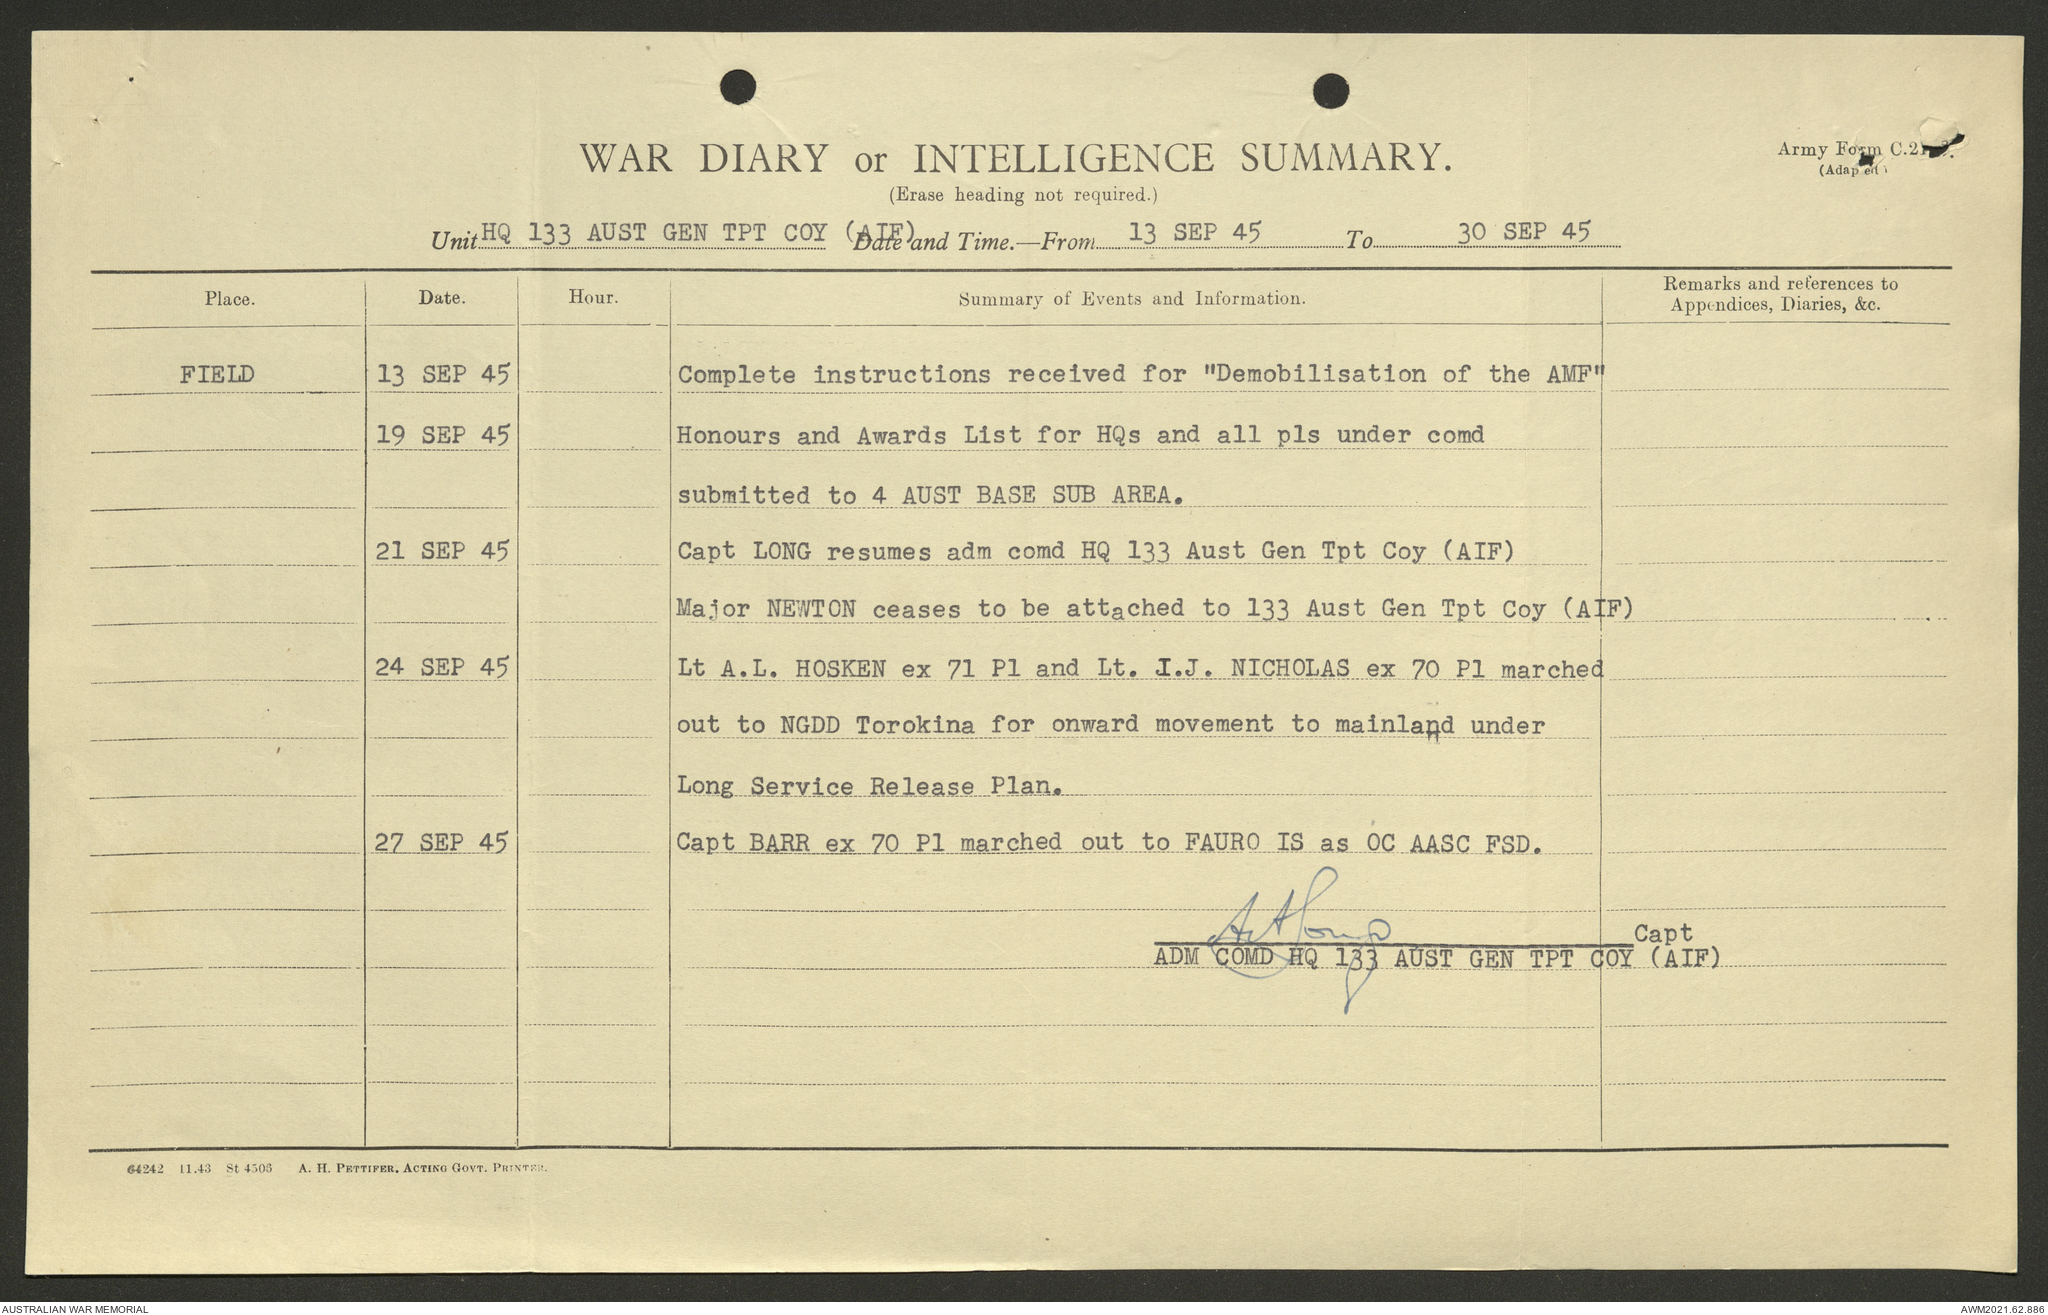 WAR DIARY or INTELLIGENCE SUMMARY.
Army Form
(Adapted)
(Erase heading not required.)
Unit HQ 133 AUST GEN TPT COY (AIF) Date and Time.—From 13 SEP 45 To 30 SEP 45
Place. Date. Hour. Summary of Events and Information. Remarks and references to Appendices, Diaries, &c.
FIELD 13 SEP 45 Complete instructions received for "Demobilisation of the AMF"
19 SEP 45 Honours and Awards List for HQs and all pls under comd
submitted to 4 AUST BASE SUB AREA.
21 SEP 45 Capt LONG resumes adm comd HQ 133 Aust Gen Tpt Coy (AIF)
Major NEWTON ceases to be attached to 133 Aust Gen Tpt Coy (AIF)
24 SEP 45 Lt A.L. HOSKEN ex 71 Pl and Lt. I.J. NICHOLAS ex 70 Pl marched
out to NGDD Torokina for onward movement to mainland under
Long Service Release Plan.
27 SEP 45 Capt BARR ex 70 Pl marched out to FAURO IS as OC AASC FSD.
Long Capt
ADM COMD HQ 133 AUST GEN TPT COY (AIF)
64242 11.43 St 4506 A. H. PETTIFER, ACTING GOVT. PRINTER.
AUSTRALIAN WAR MEMORIAL AWM2021.62.886